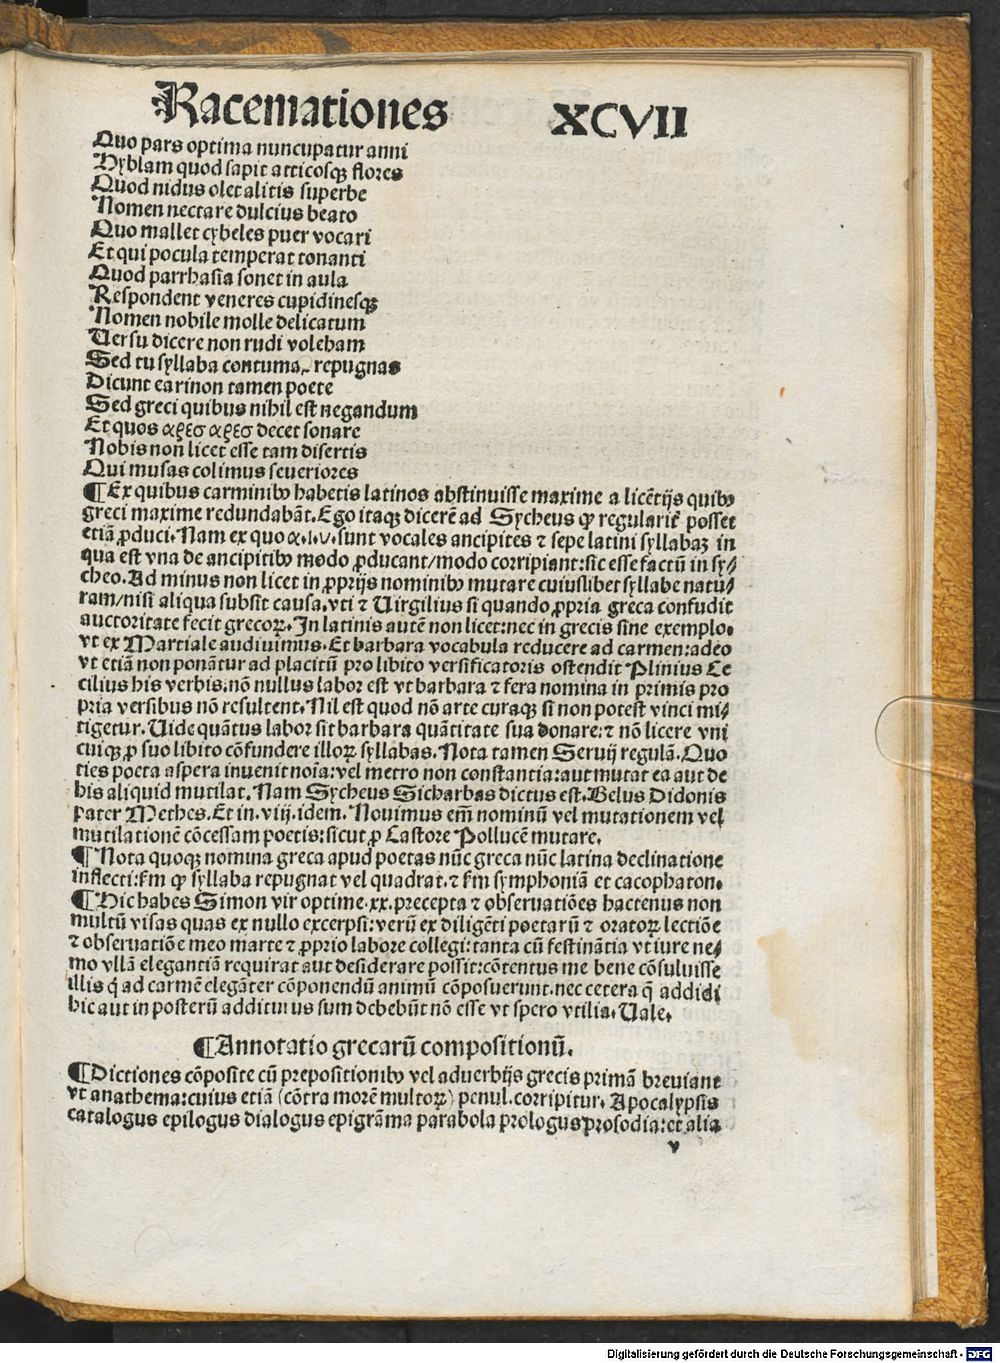 Racemationes XCVII
Quo pars optima nuncupatur anni
Hyblam quod sapit atticosqꝫ flores
Quod nidus olet alitis superbe
Nomen nectare dulcius beato
Quo mallet cybeles puer vocari
Et qui pocula temperat tonanti
Quod parrhasia sonet in aula
Respondent veneres cupidinesqꝫ
Nomen nobile molle delicatum
Versu dicere non rudi volebam
Sed tu syllaba contuma repugnas
Dicunt earinon tamen poete
Sed greci quibus nihil est negandum
Et quos αρεσ αρεσ decet sonare
Nobis non licet esse tam disertis
Qui musas colimus seueriores
¶ Ex quibus carminibꝰ habetis latinos abstinuisse maxime a licētijs quibꝰ
greci maxime redundabāt. Ego itaqꝫ dicerē ad Sycheus ꝙ regularit̄ posset
etiā ꝓduci. Nam ex quo α.ι.υ. sunt vocales ancipites ⁊ sepe latini syllabaꝫ in
qua est vna de ancipitibꝰ modo ꝓducant/modo corripiant: sic esse factū in sy⸗
cheo. Ad minus non licet in ꝓprijs nominibꝰ mutare cuiuslibet syllabe natu⸗
ram/nisi aliqua subsit causa. vti ⁊ Uirgilius si quando ꝓpria greca confudit
auctoritate fecit grecoꝝ. In latinis autē non licet: nec in grecis sine exemplo.
vt ex Martiale audiuimus. Et barbara vocabula reducere ad carmen: adeo
vt etiā non ponātur ad placitū pro libito versificatoris ostendit Plinius Ce
cilius his verbis. nō nullus labor est vt barbara ⁊ fera nomina in primis pro
pria versibus nō resultent. Nil est quod nō arte curaqꝫ si non potest vinci mi⸗
tigetur. Uide quātus labor sit barbara quātitate sua donare: ⁊ nō licere vni
cuiqꝫ ꝓ suo libito cōfundere illoꝝ syllabas. Nota tamen Seruij regulā. Quo
ties poeta aspera inuenit noīa: vel metro non constantia: aut mutat ea aut de
his aliquid mutilat. Nam Sycheus Sicharbas dictus est. Belus Didonis
pater Methes. Et in .viij. idem. Nouimus em̄ nominū vel mutationem vel
mutilationē cōcessam poetis: sicut ꝓ Castore Pollucē mutare.
¶ Nota quoqꝫ nomina greca apud poetas nūc greca nūc latina declinatione
inflecti: fm ꝙ syllaba repugnat vel quadrat. ⁊ fm symphoniā et cacophaton.
¶ Hic habes Simon vir optime .xx. precepta ⁊ obseruatiōes hactenus non
multū visas quas ex nullo excerpsi: verū ex diligēti poetarū ⁊ oratoꝝ lectiōe
⁊ obseruatiōe meo marte ⁊ ꝓprio labore collegi: tanta cū festinātia vt iure ne⸗
mo vllā elegantiā requirat aut desiderare possit: cōtentus me bene cōsuluisse
illis q̄ ad carmē elegāter cōponendū animū cōposuerunt. nec cetera q̄ addidi
hic aut in posterū additurus sum debebūt nō esse vt spero vtilia. Uale.
¶ Annotatio grecarū compositionū.
¶ Dictiones cōposite cū prepositionibꝰ vel aduerbijs grecis primā breuiant
vt anathema: cuius etiā (cōtra morē multoꝝ) penul. corripitur. Apocalypsis
catalogus epilogus dialogus epigrāma parabola prologus prosodia: et alia
v
Digitalisierung gefördert durch die Deutsche Forschungsgemeinschaft - DFG